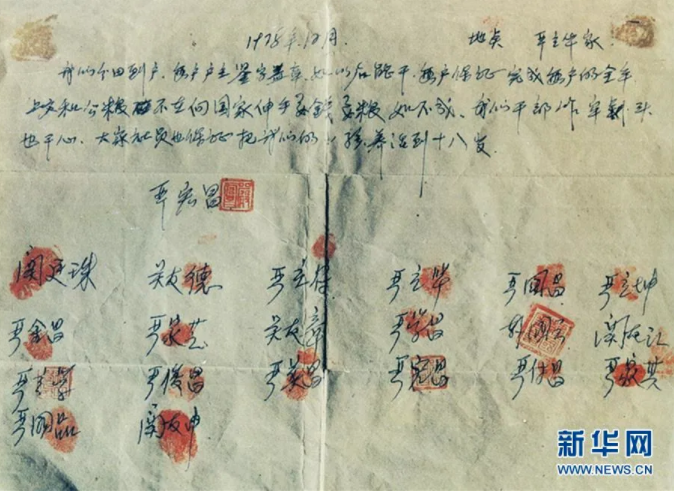 1978年12月. 地点 严立华家.
我们分田到户,每户户主签字盖章,如以后能干,每户保证完成每户的全年
上交和公粮 不在向国家伸手要钱要粮,如不成,我们干部作牢刹头
也干心.大家社员也保证把我们的小孩养活到十八岁.
严宏昌
关廷珠 关友德 严立符 严立华 严国昌 严立坤
严金昌 严家芝 关友章 严学昌 韩国云 关友江
严立学 严俊昌 严美昌 严宏昌 严付昌 严家其
严国品 关友申
新华网
WWW.NEWS.CN